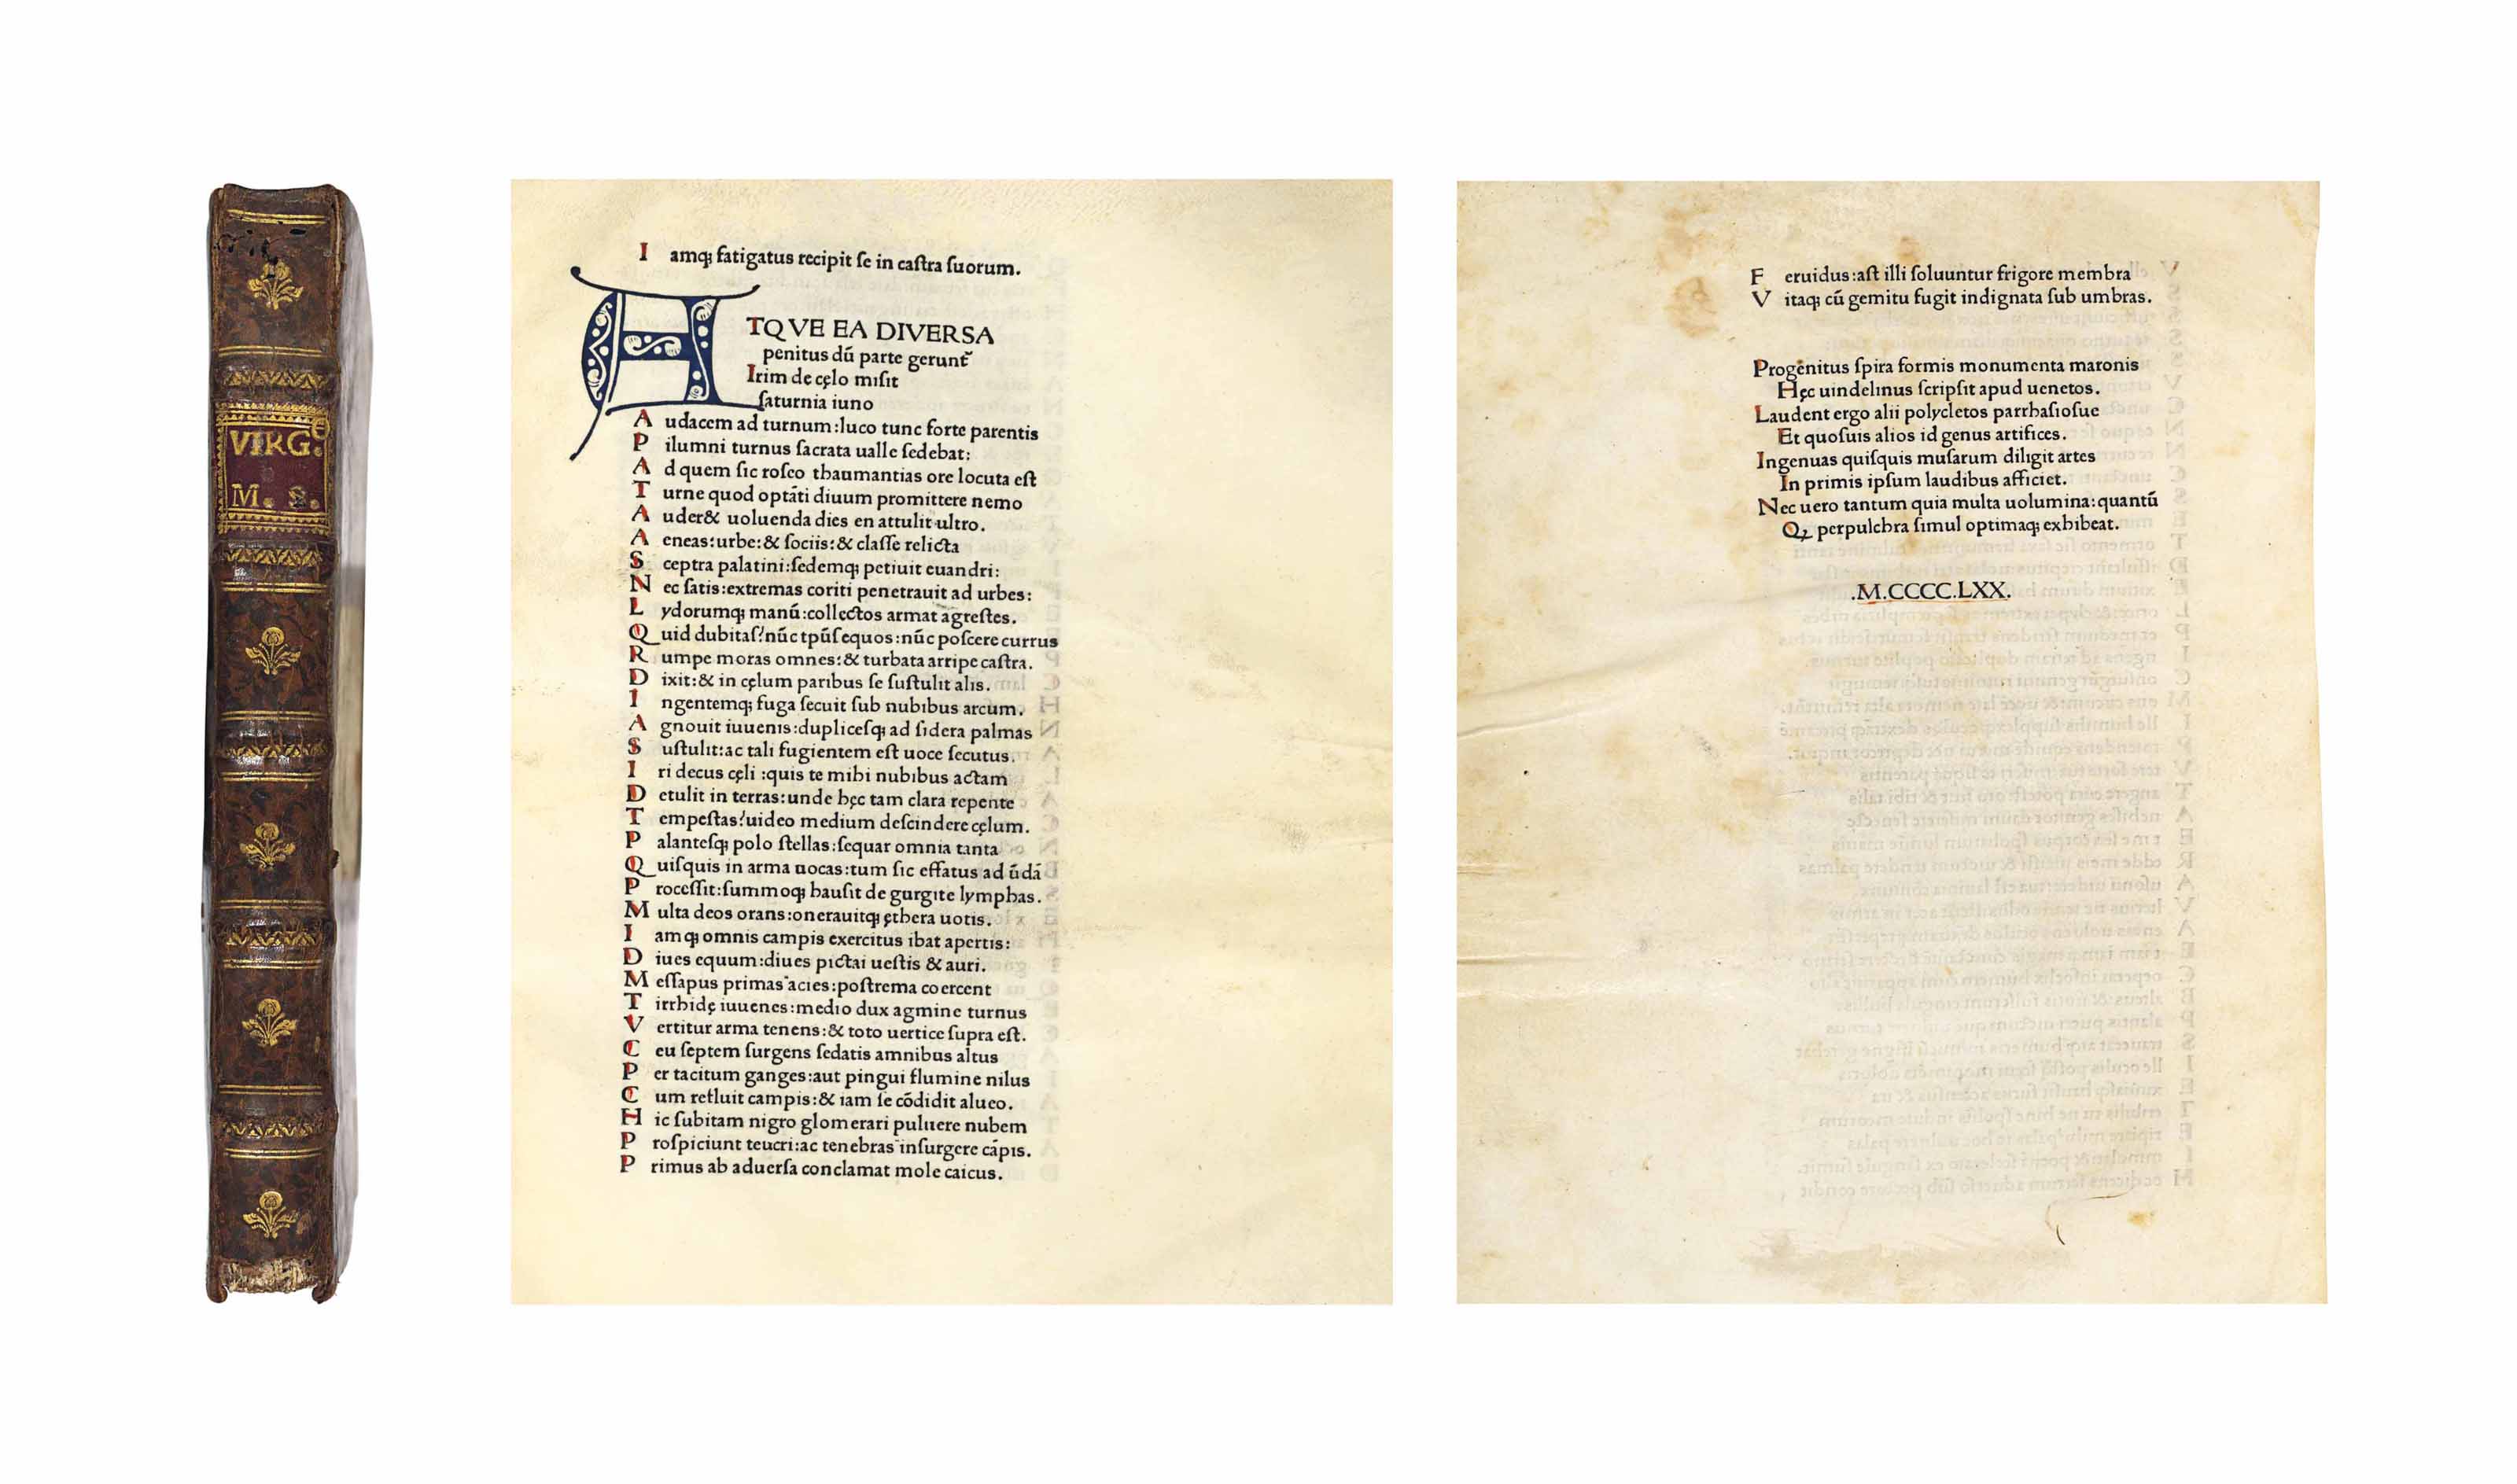 VIRG.
M. S.
I amq; fatigatus recipit ſe in caſtra ſuorum.
A
TQVE EA DIVERSA
penitus dū parte gerunt᷑
Irim de cęlo miſit
ſaturnia iuno
A udacem ad turnum:luco tunc forte parentis
P ilumni turnus ſacrata ualle ſedebat:
A d quem ſic roſeo thaumantias ore locuta eſt
T urne quod optāti diuum promittere nemo
A uder& uoluenda dies en attulit ultro.
A eneas:urbe:& ſociis:& claſſe relicta
S ceptra palatini:ſedemq; petiuit euandri:
N ec ſatis:extremas coriti penetrauit ad urbes:
L ydorumq; manū:collectos armat agreſtes.
Q uid dubitaſ?nūc tpūſ equos:nūc poſcere currus
R umpe moras omnes:& turbata arripe caſtra.
D ixit:& in cęlum paribus ſe ſuſtulit alis.
I ngentemq; fuga ſecuit ſub nubibus arcum.
A gnouit iuuenis:dupliceſq; ad ſidera palmas
S uſtulit:ac tali fugientem eſt uoce ſecutus.
I ri decus cęli :quis te mihi nubibus actam
D etulit in terras:unde hęc tam clara repente
T empeſtas?uideo medium deſcindere cęlum.
P alanteſq; polo ſtellas:ſequar omnia tanta
Q uiſquis in arma uocas:tum ſic effatus ad ūdā
P roceſſit:ſummoq; hauſit de gurgite lymphas.
M ulta deos orans:onerauitq; ęthera uotis.
I amq; omnis campis exercitus ibat apertis:
D iues equum:diues pictai ueſtis & auri.
M eſſapus primas acies:poſtrema coercent
T irrhidę iuuenes:medio dux agmine turnus
V ertitur arma tenens:& toto uertice ſupra eſt.
C eu ſeptem ſurgens ſedatis amnibus altus
P er tacitum ganges:aut pingui flumine nilus
C um refluit campis:& iam ſe cōdidit alueo.
H ic ſubitam nigro glomerari puluere nubem
P roſpiciunt teucri:ac tenebras inſurgere cāpis.
P rimus ab aduerſa conclamat mole caicus.
F eruidus:aſt illi ſoluuntur frigore membra
V itaq; cū gemitu fugit indignata ſub umbras.
Progenitus ſpira formis monumenta maronis
Hęc uindelinus ſcripſit apud uenetos.
Laudent ergo alii polycletos parrhaſioſue
Et quoſuis alios id genus artifices.
Ingenuas quiſquis muſarum diligit artes
In primis ipſum laudibus afficiet.
Nec uero tantum quia multa uolumina:quantū
Qꝫ perpulchra ſimul optimaq; exhibeat.
.M.CCCC.LXX.